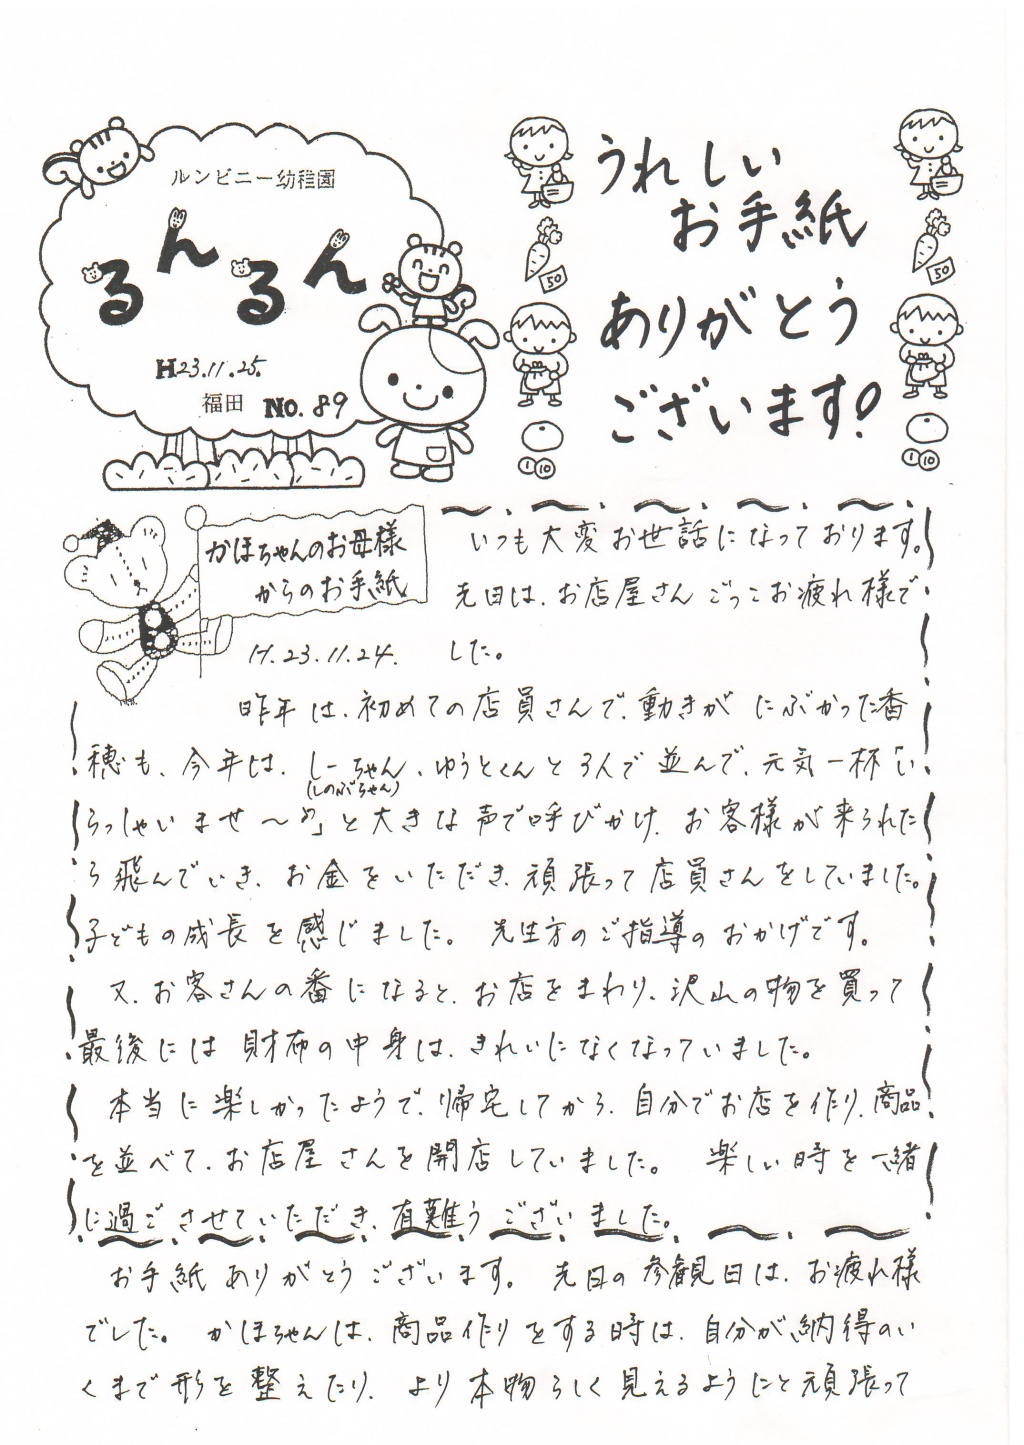 ルンビニー幼稚園
るんるん
H23.11.25.
福田 No.89
うれしい
お手紙
ありがとう
ございます!
50
50
1 10
1 10
かほちゃんのお母様
からのお手紙
H.23.11.24.
いつも大変お世話になっております。
先日は、お店屋さんごっこお疲れ様で
した。
昨年は、初めての店員さんで、動きがにぶかった香
穂も、今年は、しーちゃん、ゆうとくんと3人で並んで、元気一杯「い
(しのぶちゃん)
らっしゃいませ〜め」と大きな声で呼びかけ、お客様が来られた
ら飛んでいき、お金をいただき、頑張って店員さんをしていました。
子どもの成長を感じました。 先生方のご指導のおかげです。
又、お客さんの番になると、お店をまわり、沢山の物を買って
最後には財布の中身は、きれいになくなっていました。
本当に楽しかったようで、帰宅してから、自分でお店を作り、商品
を並べて、お店屋さんを開店していました。 楽しい時を一緒
に過ごさせていただき、有難うございました。
お手紙ありがとうございます。 先日の参観日は、お疲れ様
でした。 かほちゃんは、商品作りをする時は、自分が納得のい
くまで形を整えたり、より本物らしく見えるようにと頑張って